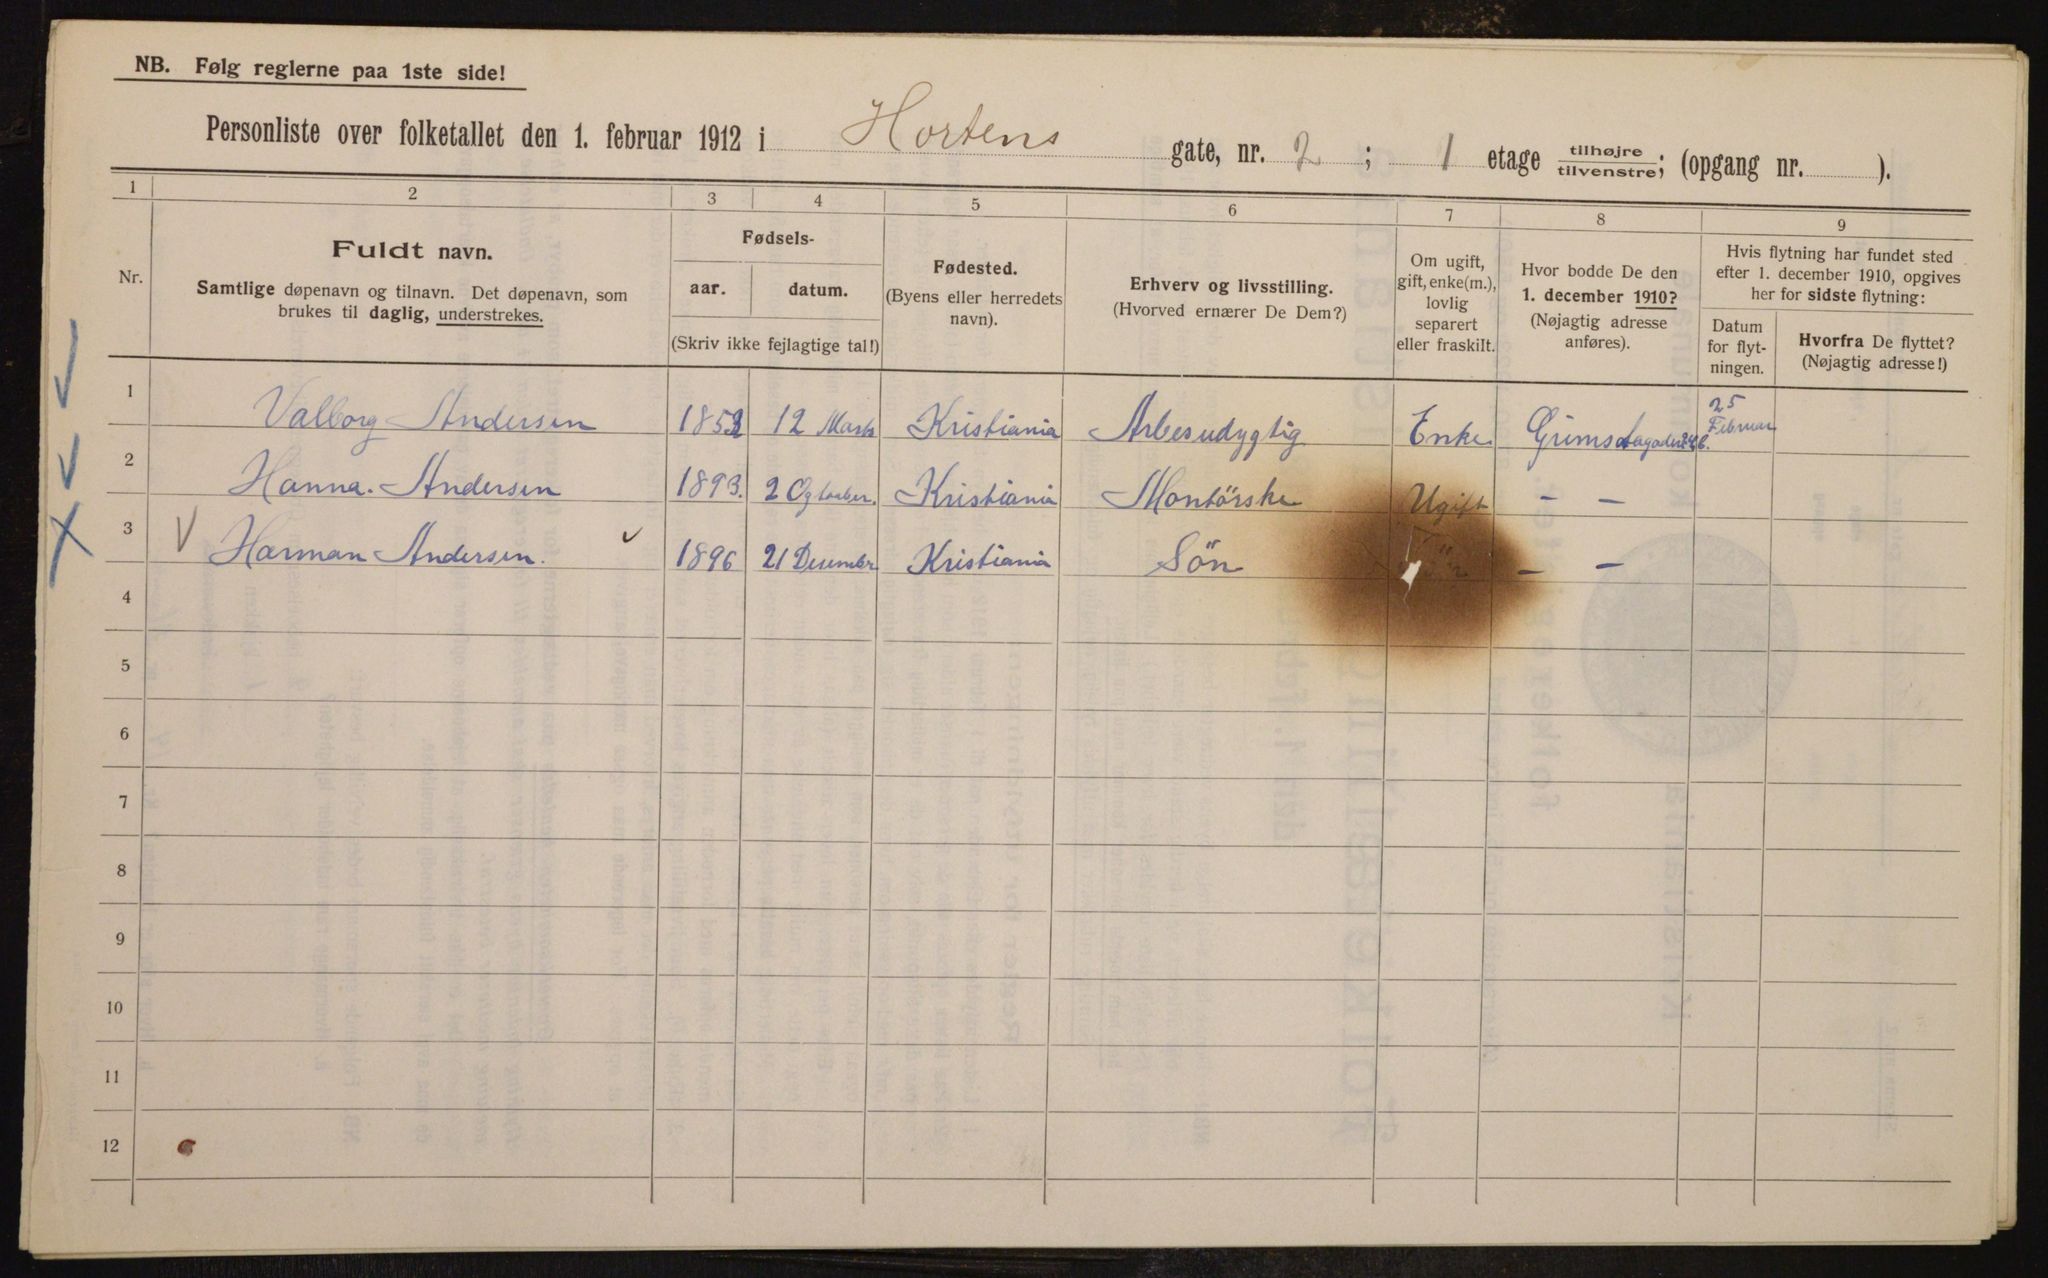 NB. Følg reglerne paa 1ste side!
Personliste over folketallet den 1. februar 1912 i Hortens gate, nr. 2 ; 1 etage tilhøjre/tilvenstre; (opgang nr. ).
1 2 3 4 5 6 7 8 9
Nr.
Fuldt navn.
Samtlige døpenavn og tilnavn. Det døpenavn, som
brukes til daglig, understrekes.
Fødsels-
aar. datum.
(Skriv ikke fejlagtige tal!)
Fødested.
(Byens eller herredets
navn).
Erhverv og livsstilling.
(Hvorved ernærer De Dem?)
Om ugift,
gift, enke(m.),
lovlig
separert
eller fraskilt.
Hvor bodde De den
1. december 1910?
(Nøjagtig adresse
anføres).
Hvis flytning har fundet sted
efter 1. december 1910, opgives
her for sidste flytning:
Datum
for flyt-
ningen.
Hvorfra De flyttet?
(Nøjagtig adresse!)
1 Valborg Andersen 1852 12 Mars Kristiania Arbesudygtig Enke 25 Februar
2 Hanna. Andersen 1893. 2 Ogtober. Kristiania Montörske Ugift — —
3 Harman Andersen. 1896 21 Desember Kristiania Sön — —
4
5
6
7
8
9
10
11
12